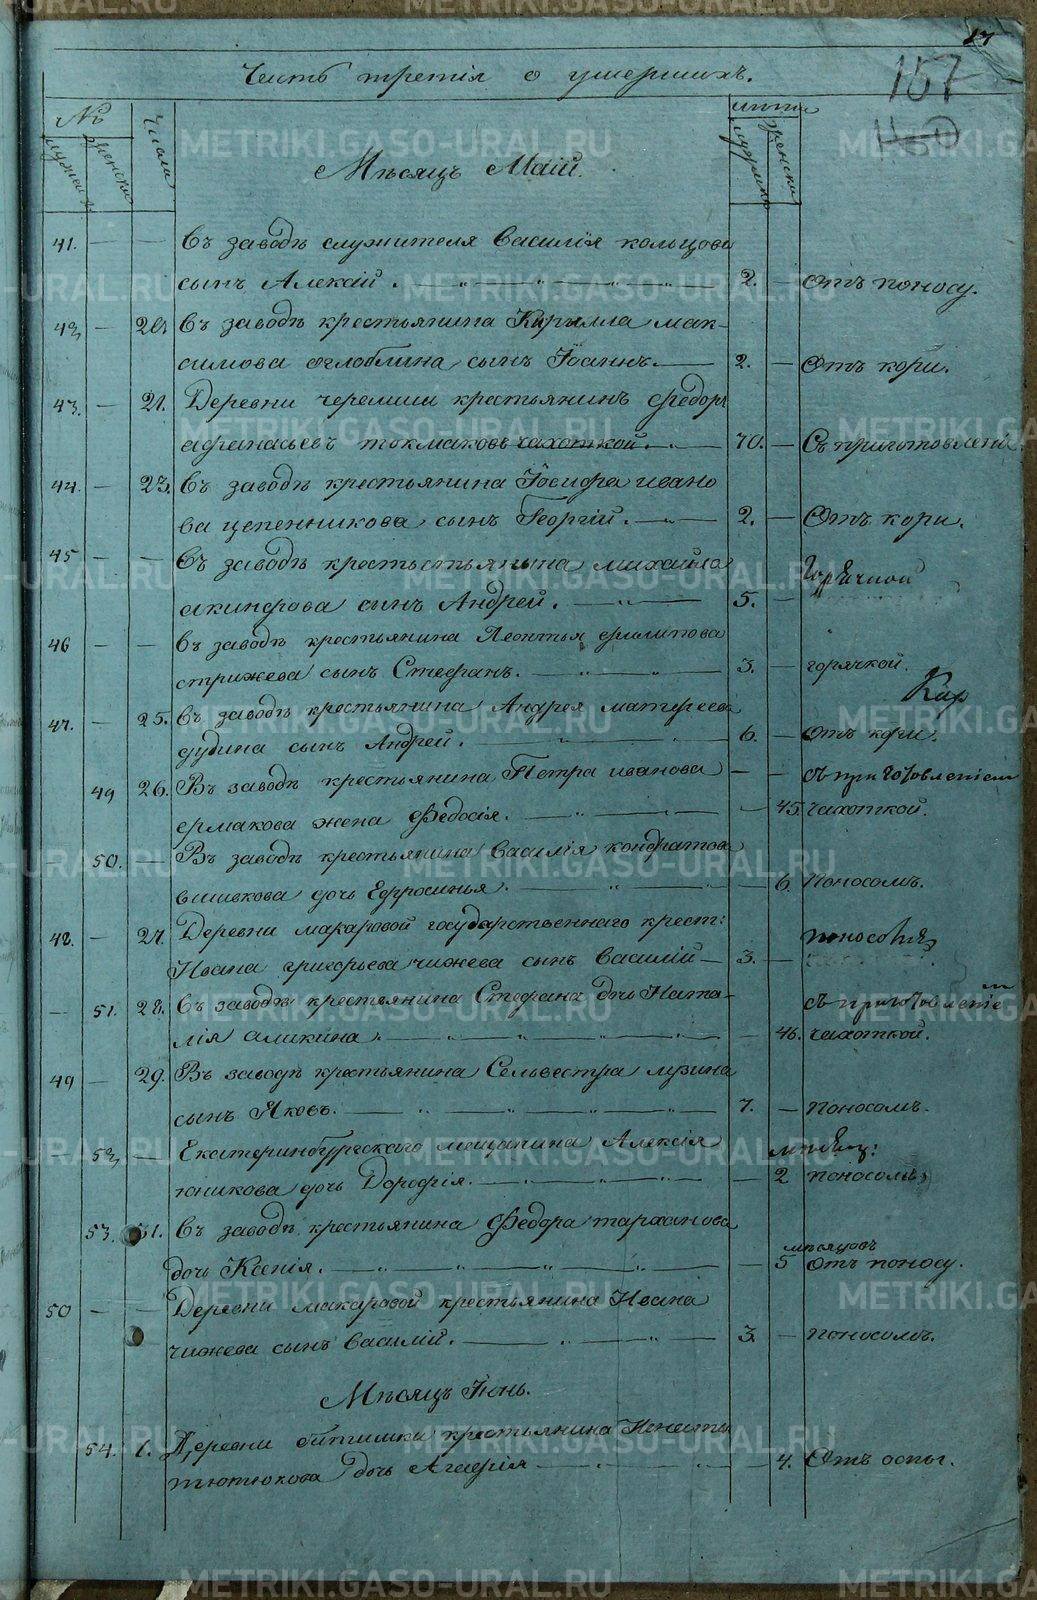 17
157
Часть третія о умершихъ.
№ Числа лѣта
мужеск женски мужеска женска
Мѣсяцъ Маій.
41. — — Въ заводѣ служителя Василія кольцова
сынъ Алексій. 2. — Отъ поносу.
42 — 20. Въ заводѣ крестьянина Кирилла мак-
симова оглоблина сынъ Іоаннъ. 2. — Отъ кори.
43. — 21. Деревни черемши крестьянинъ Федоръ
афанасьевъ токмаковъ чахоткой. 70. — Съ приготовлени
44. — 23. Въ заводѣ крестьянина Іосифа ивано
ва цепенникова сынъ Георгій. 2. — Отъ кори.
45 — — Въ заводѣ крестьестьянина михайла
акинфова сынъ Андрей. 5. — Горячкой
46 — — Въ заводѣ крестьянина Леонтья филипова
стрижева сынъ Стефанъ. 3. — горячкой.
47. — 25. Въ заводѣ крестьянина Андрея матфеева
дудина сынъ Андрей. 6. — Отъ кори.
49 26. Въ заводѣ крестьянина Петра иванова — — съ приготовленіем
ермакова жена Федосія. — 45. чахоткой.
— 50. — Въ заводѣ крестьянина Василія кондратова
вшивкова дочь Ефросинья. — 6. Поносомъ.
48. — 27. Деревни макаровой государственнаго крест:
Ивана григорьева чижева сынъ Василій — 3. — поносомъ
— 51. 28. Въ заводѣ крестьянина Стефана дчь Ната- съ приготовленіем
лія аликина. — 46. чахоткой.
49 — 29. Въ заводѣ крестьянина Сельвестра лузина
сынъ Яковъ. 7. — Поносомъ.
52 — Екатеринбургскаго мещанина Алексія
юшкова дочь Дорофія. — 2 поносомъ
53. 31. Въ заводѣ крестьянина Федора тарханова
мѣсяцовъ
дочь Ксенія. — 5 Отъ поносу.
50 — — Деревни макаровой крестьянина Ивана
чижева сынъ Василій. 3. — поносомъ.
Мѣсяцъ Іюнь.
54. 1. Деревни крестьянина
тютюкова дочь Агафія — 4. Отъ оспы.
METRIKI.GASO-URAL.RU